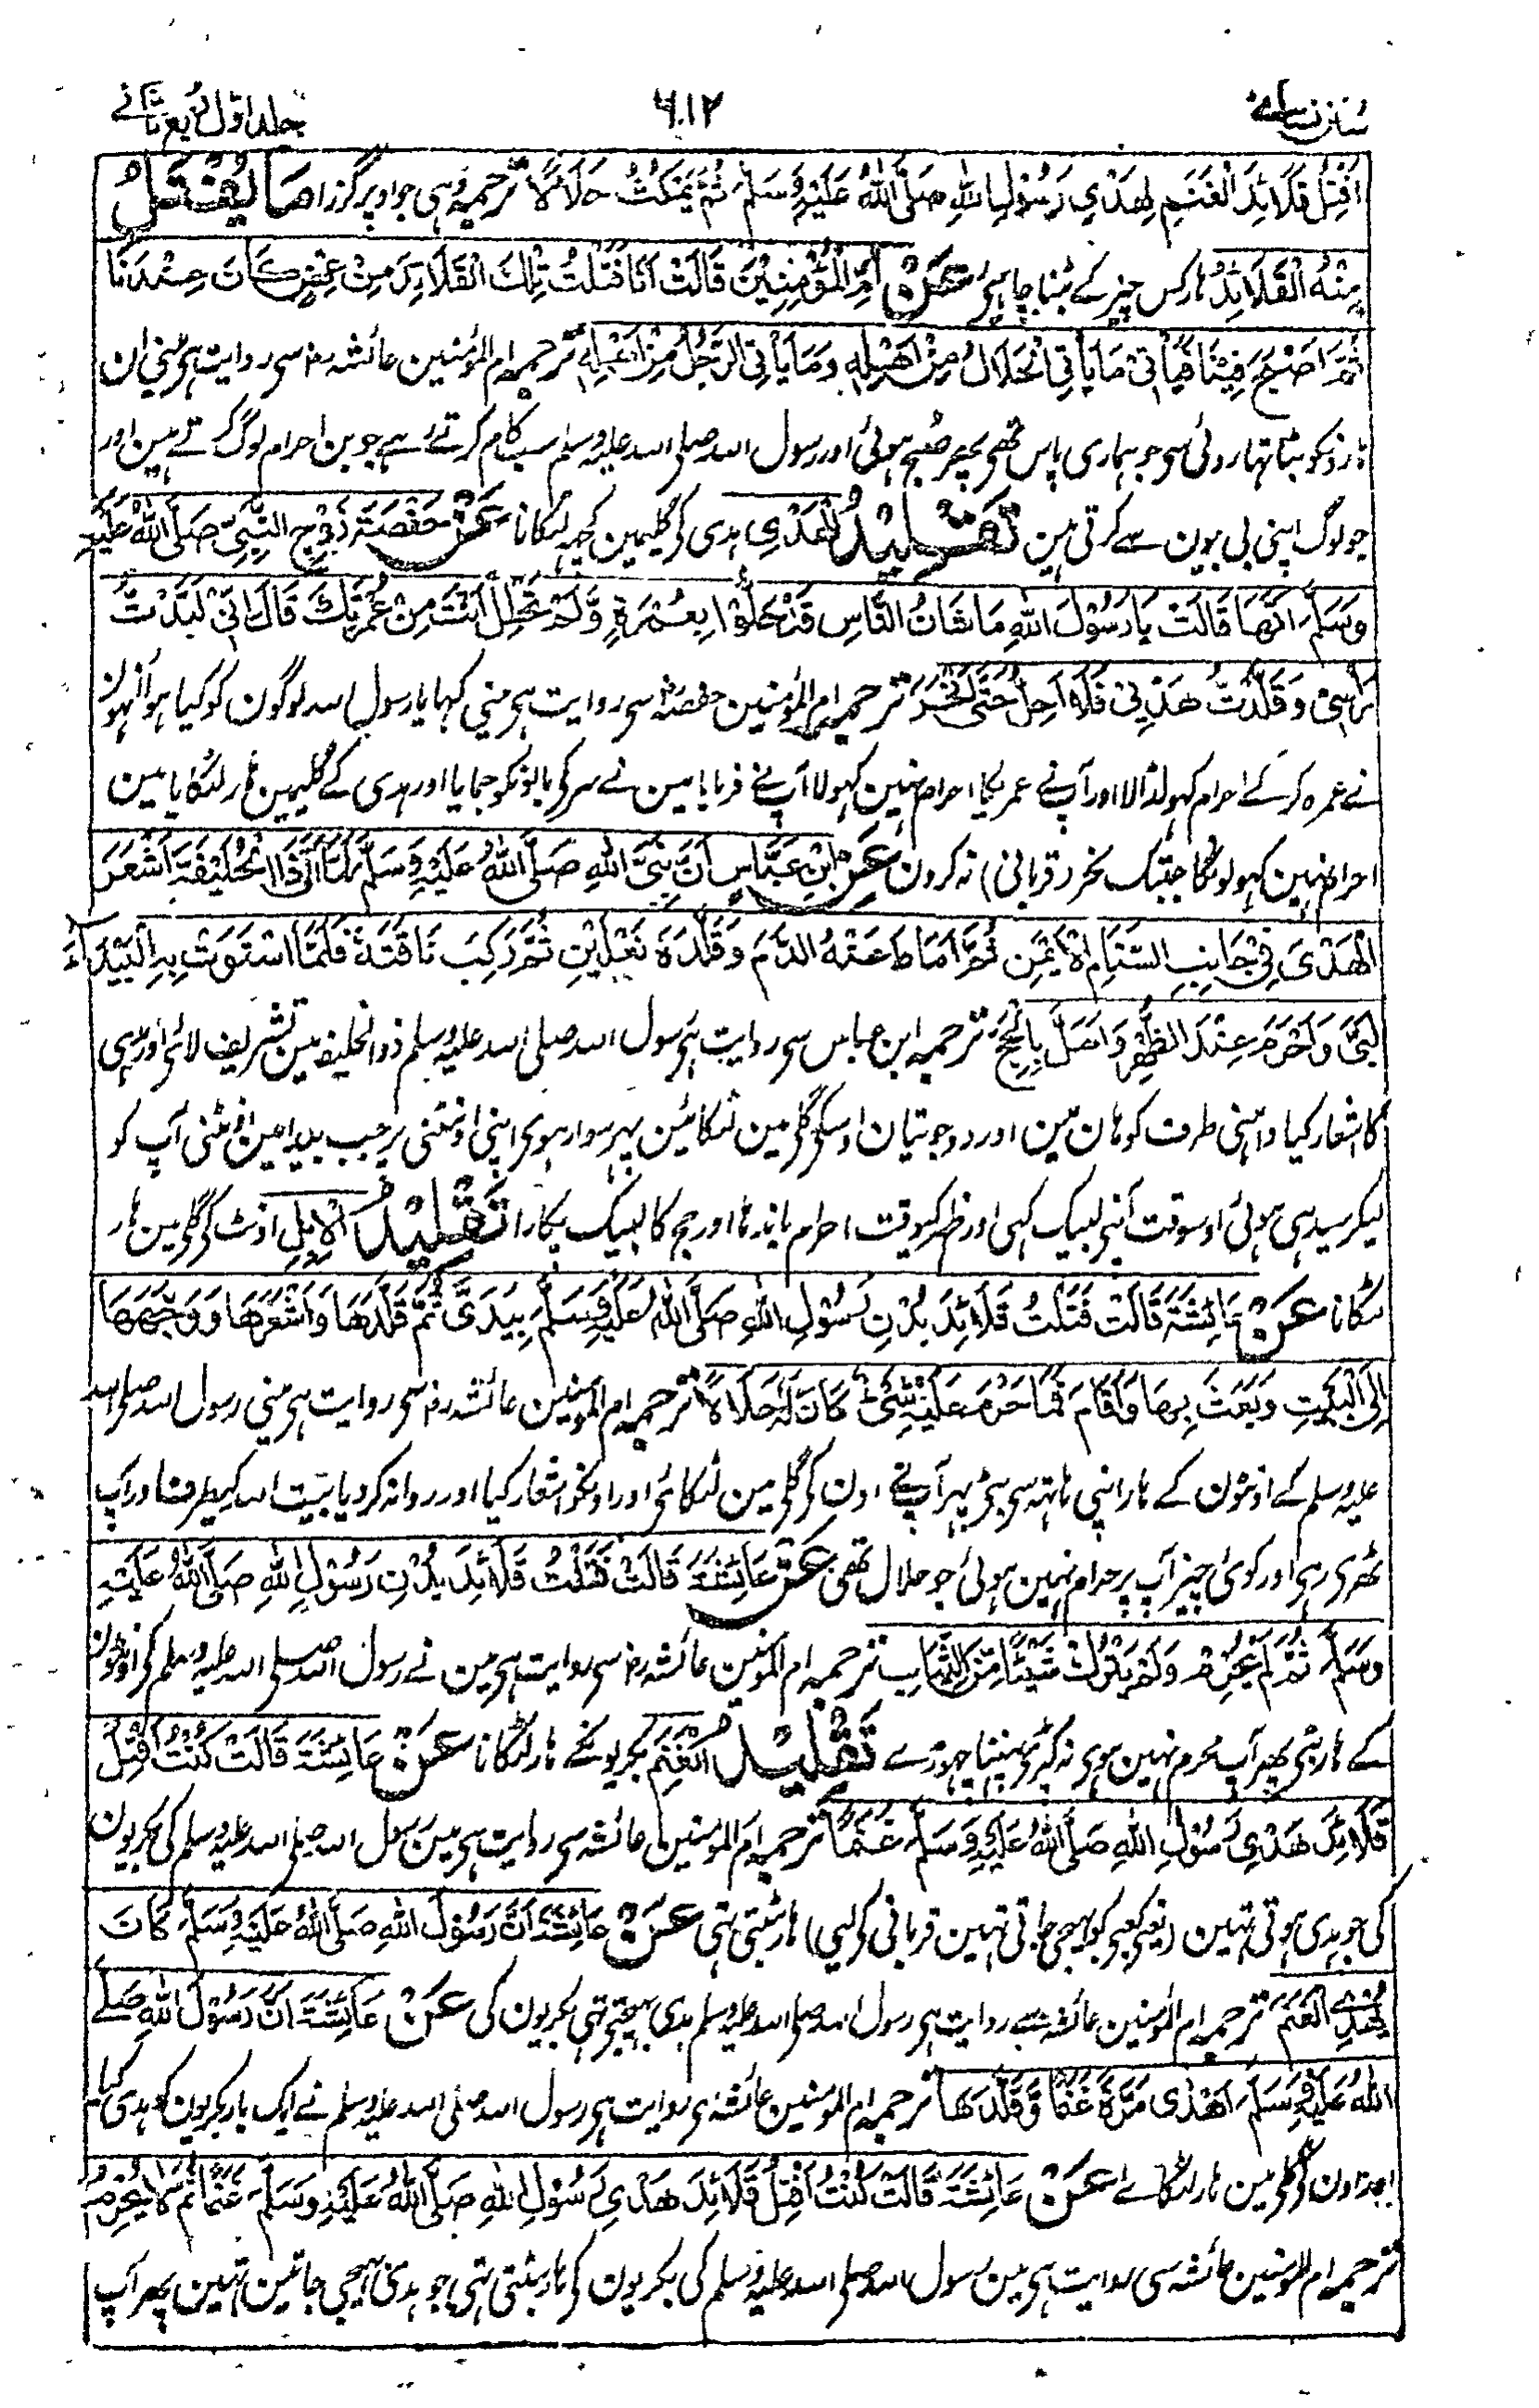 سنن نسائے ۶۱۲ جلد اول ربع ثانے
اَفْتِلُ قَلَائِدَ الْغَنَمِ لِهَدْيِ رَسُوْلِ اللّٰهِ صَلَّى اللّٰهُ عَلَيْهِ وَسَلَّمَ ثُمَّ يَمْكُثُ حَلَالًا ترجمہ وہی جو اوپر گزرا مَا يُفْتَلُ
مِنْهُ الْقَلَائِدُ ہار کس چیز کے بٹنا چاہئے عَنْ اُمِّ الْمُؤْمِنِيْنَ قَالَتْ اَنَا فَتَلْتُ تِلْكَ الْقَلَائِدَ مِنْ عِهْنٍ كَانَ عِنْدَنَا
ثُمَّ اَصْبَحَ فِيْنَا فَيَأْتِيْ مَا يَأْتِي الْحَلَالُ مِنْ اَهْلِهٖ وَمَا يَأْتِي الرَّجُلُ مِنْ اَهْلِهٖ ترجمہ ام المؤمنین عائشہ رض سی روایت ہی مینی ان
ہارونکو بٹا تہا روئی سی جو ہماری پاس تھی پھر صبح ہوئی اور رسول اللہ صلی اللہ علیہ وسلم سب کام کرتے رہے جو بن احرام لوگ کرتے ہین اور
جو لوگ اپنی بی بیون سے کرتی ہین تَقْلِيْدُ الْهَدْيِ ہدی کی گلیمین کچہ لٹکانا عَنْ حَفْصَةَ زَوْجِ النَّبِيِّ صَلَّى اللّٰهُ عَلَيْهِ
وَسَلَّمَ اَنَّهَا قَالَتْ يَا رَسُوْلَ اللّٰهِ مَا شَانُ النَّاسِ قَدْ حَلُّوْا بِعُمْرَةٍ وَّلَمْ تَحْلِلْ اَنْتَ مِنْ عُمْرَتِكَ قَالَ اِنِّيْ لَبَّدْتُّ
رَأْسِيْ وَقَلَّدْتُّ هَدْيِيْ فَلَا اَحِلُّ حَتّٰى اَنْحَرَ ترجمہ ام المؤمنین حفصہ رض سی روایت ہی مینی کہا یا رسول اللہ لوگون کو کیا ہوا انہون
نے عمرہ کر کے احرام کہول ڈالا اور آپ نے عمریکا احرام نہین کہولا آپ نے فرمایا مین نے سر کی بالونکو جمایا اور ہدی کے گلیمین ہار لٹکایا مین
احرام نہین کہولونگا جبتک نحر (قربانی) نہ کرون عَنِ ابْنِ عَبَّاسٍ اَنَّ نَبِيَّ اللّٰهِ صَلَّى اللّٰهُ عَلَيْهِ وَسَلَّمَ لَمَّا اَتٰى ذَا الْحُلَيْفَةِ اَشْعَرَ
الْهَدْيَ فِيْ جَانِبِ السَّنَامِ الْاَيْمَنِ ثُمَّ اَمَاطَ عَنْهُ الدَّمَ وَقَلَّدَهُ نَعْلَيْنِ ثُمَّ رَكِبَ نَاقَتَهٗ فَلَمَّا اسْتَوَتْ بِهِ الْبَيْدَاءَ
لَبّٰى وَاَحْرَمَ عِنْدَ الظُّهْرِ وَاَهَلَّ بِالْحَجِّ ترجمہ ابن عباس سی روایت ہی رسول اللہ صلی اللہ علیہ وسلم ذو الحلیفہ مین تشریف لائی اور ہدی
کا اشعار کیا داہنی طرف کوہان مین اور دو جوتیان اوسکی گلی مین لٹکائین پہر سوار ہوی اپنی اونٹنی پر جب بیدا مین اونٹنی آپ کو
لیکر سیدہی ہوئی اوسوقت آپنی لبیک کہی اور ظہر کیوقت احرام باندہا اور حج کا لبیک پکارا تَقْلِيْدُ الْاِبِلِ اونٹ کی گلی مین ہار
لٹکانا عَنْ عَائِشَةَ قَالَتْ فَتَلْتُ قَلَائِدَ بُدْنِ رَسُوْلِ اللّٰهِ صَلَّى اللّٰهُ عَلَيْهِ وَسَلَّمَ بِيَدَيَّ ثُمَّ قَلَّدَهَا وَاَشْعَرَهَا وَوَجَّهَهَا
اِلَى الْبَيْتِ وَبَعَثَ بِهَا وَاَقَامَ فَمَا حَرُمَ عَلَيْهِ شَيْءٌ كَانَ لَهٗ حَلَالًا ترجمہ ام المؤمنین عائشہ رض سی روایت ہی مینی رسول اللہ صلی اللہ
علیہ وسلم کے اونٹون کے ہار اپنی ہاتہہ سی بٹی پہر آپ نے اون کی گلی مین لٹکائی اور اونکو اشعار کیا اور روانہ کر دیا بیت اللہ کیطرف اور آپ
ٹھری رہی اور کوئی چیز آپ پر حرام نہین ہوئی جو حلال تھی عَنْ عَائِشَةَ قَالَتْ فَتَلْتُ قَلَائِدَ بُدْنِ رَسُوْلِ اللّٰهِ صَلَّى اللّٰهُ عَلَيْهِ
وَسَلَّمَ ثُمَّ لَمْ يُحْرِمْ وَلَمْ يَتْرُكْ شَيْئًا مِّنَ الثِّيَابِ ترجمہ ام المؤمنین عائشہ رض سی روایت ہی مین نے رسول اللہ صلی اللہ علیہ وسلم کی اونٹون
کے ہار بٹی پھر آپ محرم نہین ہوی نہ کپڑی پہننا چہوڑے تَقْلِيْدُ الْغَنَمِ بکریونکے ہار لٹکانا عَنْ عَائِشَةَ قَالَتْ كُنْتُ اَفْتِلُ
قَلَائِدَ هَدْيِ رَسُوْلِ اللّٰهِ صَلَّى اللّٰهُ عَلَيْهِ وَسَلَّمَ غَنَمًا ترجمہ ام المؤمنین عائشہ سی روایت ہی مین رسول اللہ صلی اللہ علیہ وسلم کی بکریون
کی جو ہدی ہوتی تہین (یعنی کعبی کو بہیجی جاتی تہین قربانی کی لیی) ہار بٹتی تہی عَنْ عَائِشَةَ اَنَّ رَسُوْلَ اللّٰهِ صَلَّى اللّٰهُ عَلَيْهِ وَسَلَّمَ كَانَ
يُهْدِي الْغَنَمَ ترجمہ ام المؤمنین عائشہ سے روایت ہی رسول اللہ صلی اللہ علیہ وسلم ہدی بہیجتی تہی بکریون کی عَنْ عَائِشَةَ اَنَّ رَسُوْلَ اللّٰهِ صَلَّى
اللّٰهُ عَلَيْهِ وَسَلَّمَ اَهْدٰى مَرَّةً غَنَمًا وَّقَلَّدَهَا ترجمہ ام المؤمنین عائشہ سی روایت ہی رسول اللہ صلی اللہ علیہ وسلم نے ایک بار بکریون کو ہدی کیا
اور اون کی گلی مین ہار لٹکائے عَنْ عَائِشَةَ قَالَتْ كُنْتُ اَفْتِلُ قَلَائِدَ هَدْيِ رَسُوْلِ اللّٰهِ صَلَّى اللّٰهُ عَلَيْهِ وَسَلَّمَ غَنَمًا ثُمَّ لَا يُحْرِمُ
ترجمہ ام المؤمنین عائشہ سی روایت ہی مین رسول اللہ صلی اللہ علیہ وسلم کی بکریون کی ہار بٹتی تہی جو ہدی بہیجی جاتین تہین پھر آپ